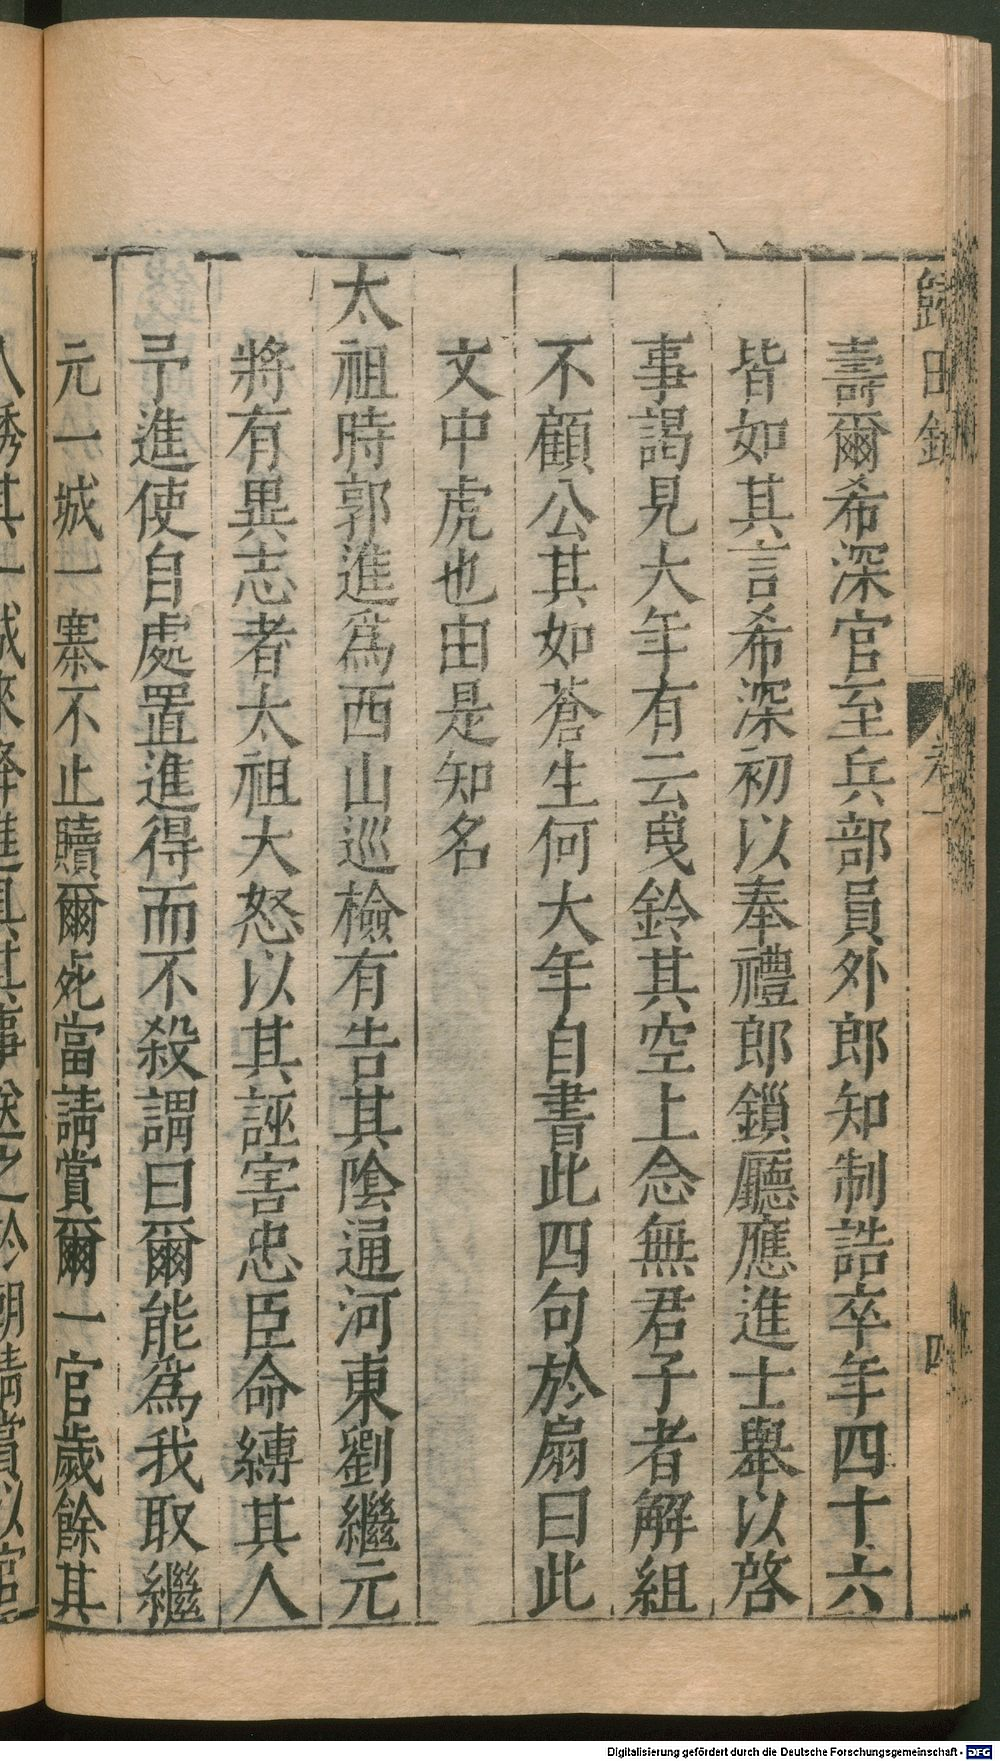 歸田錄 卷一 四
壽爾希深官至兵部員外郎知制誥卒年四十六
皆如其言希深初以奉禮郎鎖廳應進士舉以啓
事謁見大年有云曳鈴其空上念無君子者解組
不顧公其如蒼生何大年自書此四句於扇曰此
文中虎也由是知名
太祖時郭進爲西山巡檢有告其陰通河東劉繼元
將有異志者太祖大怒以其誣害忠臣命縛其人
予進使自處置進得而不殺謂曰爾能爲我取繼
元一城一寨不止贖爾死當請賞爾一官歲餘其
人誘其一城來降進具其事送之於朝請賞以官
Digitalisierung gefördert durch die Deutsche Forschungsgemeinschaft - DFG